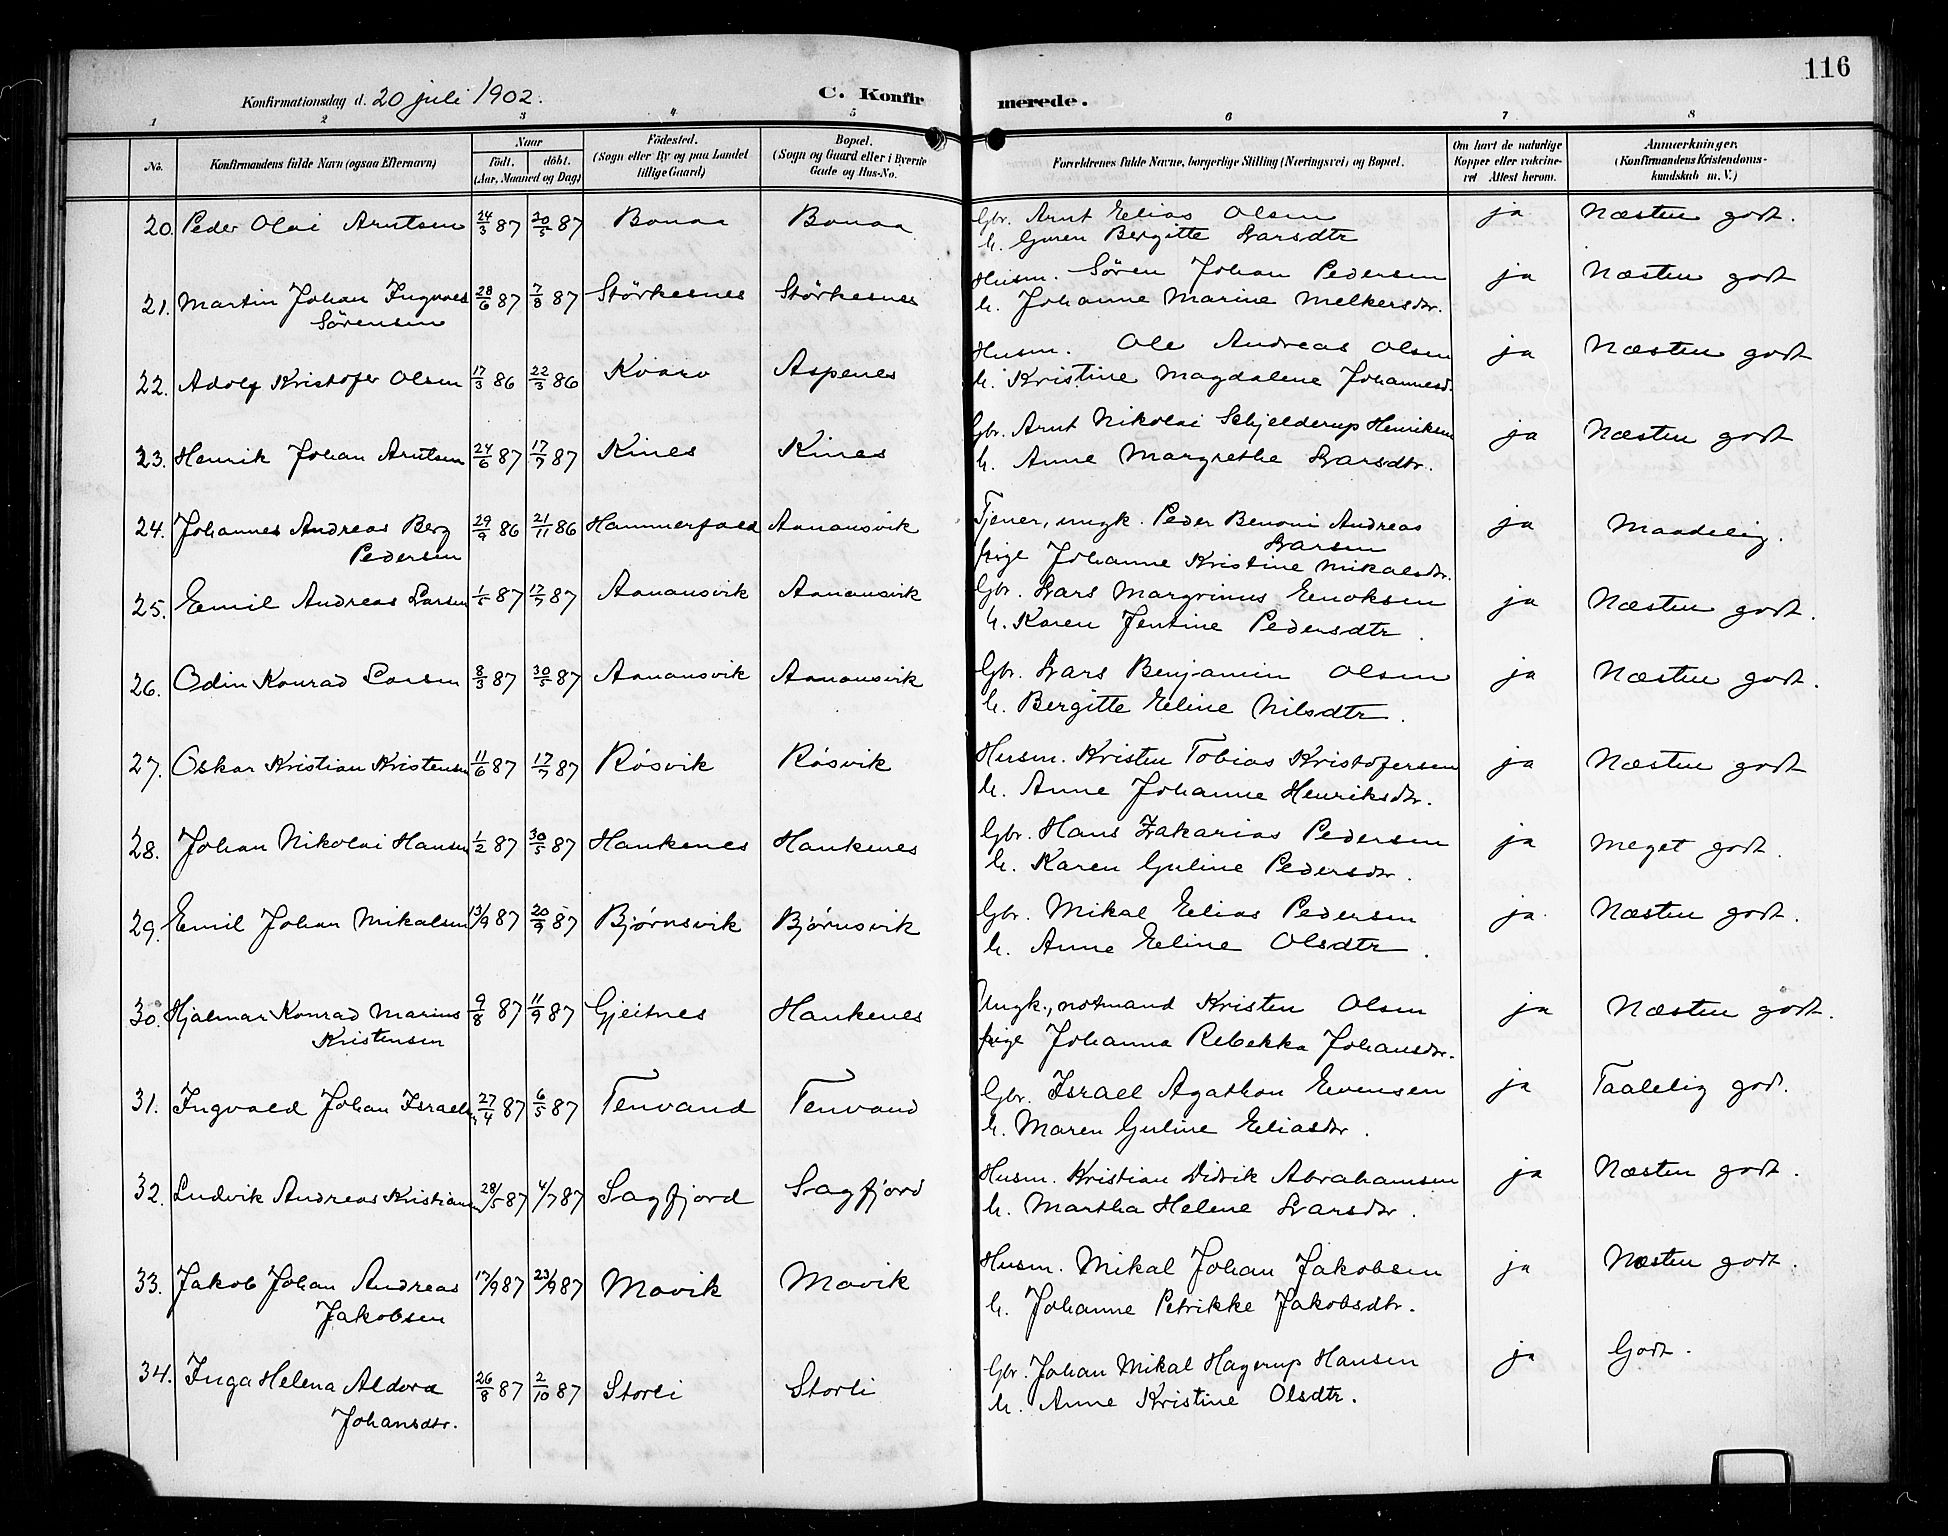 116
Konfirmationsdag d. 20 juli 1902.
C. Konfirmerede.
1 2 3 4 5 6 7 8
No.
Konfirmandens fulde Navn (ogsaa Efternavn)
Naar
födt. döbt.
(Aar, Maaned og Dag)
Födested.
(Sogn eller By og paa Landet
tillige Gaard)
Bopæl.
(Sogn og Gaard eller i Byerne
Gade og Hus-No.
Forældrenes fulde Navne, borgerlige Stilling (Næringsvei) og Bopæl.
Om havt de naturlige
Kopper eller vaccine-
ret Attest herom.
Anmærkninger.
(Konfirmandens Kristendoms-
kundskab m. V.)
20. Peder Olai Arntsen 24/3 87 20/5 87 Bonaa Bonaa Gbr. Arnt Elias Olsen ja Næsten godt.
h. Guren Bergitte Larsdtr
21. Martin Johan Ingvald 28/6 87 7/8 87 Störkesnes Störkesnes Husm. Sören Johan Pedersen ja Næsten godt
Sörensen h. Johanne Marine Melkersdtr.
22. Adolf Kristofer Olsen 17/3 86 22/3 86 Kvarv Aspenes Husm. Ole Andreas Olsen ja Næsten godt
h. Kristine Magdalene Johannesd.
23. Henrik Johan Arntsen 24/6 87 17/7 87 Kines Kines Gbr. Arnt Nikolai Schjelderup Henriksen ja Næsten godt
h. Anne Margrethe Larsdtr.
24. Johannes Andreas Berg 29/9 86 21/11 86 Hammerfald Aanansvik Tjener, ungk. Peder Benoni Andreas ja Maadelig.
Pedersen Larsen
pige Johanne Kristine Mikalsdtr.
25. Emil Andreas Larsen 1/5 87 17/7 87 Aanansvik Aanansvik Gbr. Lars Margrinus Enoksen ja Næsten godt.
h. Karen Jentine Pedersdtr.
26. Odin Konrad Larsen 8/3 87 30/5 87 Aanansvik Aanansvik Gbr. Lars Benjamin Olsen ja Næsten godt.
h. Bergitte Eline Nilsdtr.
27. Oskar Kristian Kristensen 11/6 87 17/7 87 Røsvik Røsvik Husm. Kristen Tobias Kristofersen ja Næsten godt
h. Anne Johanne Henriksdtr.
28. Johan Nikolai Hansen 1/2 87 30/5 87 Hankenes Hankenes Gbr. Hans Zakarias Pedersen ja Meget godt.
h. Karen Guline Pedersdtr.
29. Emil Johan Mikalsen 13/9 87 20/9 87 Bjørnsvik Bjørnsvik Gbr. Mikal Elias Pedersen ja. Næsten godt.
h. Anne Eline Olsdtr.
30. Hjalmar Konrad Marius 9/8 87 11/9 87 Gjeitnes Hankenes Ungk., notmand Kristen Olsen ja Næsten godt.
Kristensen pige Johanna Rebekka Johansdtr.
31. Ingvald Johan Israels. 27/4 87 6/5 87 Tenvand Tenvand Gbr. Israel Agathon Evensen ja Taalelig god.
h. Maren Guline Eliasdtr.
32. Ludvik Andreas Kristiansen 28/5 87 4/7 87 Sagfjord Sagfjord Husm. Kristian Didrik Abrahamsen ja Næsten godt.
h. Martha Helene Larsdtr.
33. Jakob Johan Andreas 17/9 87 23/9 87 Movik Movik Husm. Mikal Johan Jakobsen ja Næsten godt.
Jakobsen h. Johanne Petrikke Jakobsdtr.
34. Inga Helena Aldora 26/8 87 2/10 87 Storli Storli Gbr. Johan Mikal Hagerup Hansen ja Godt.
Johansdtr. h. Anne Kristine Olsdtr.